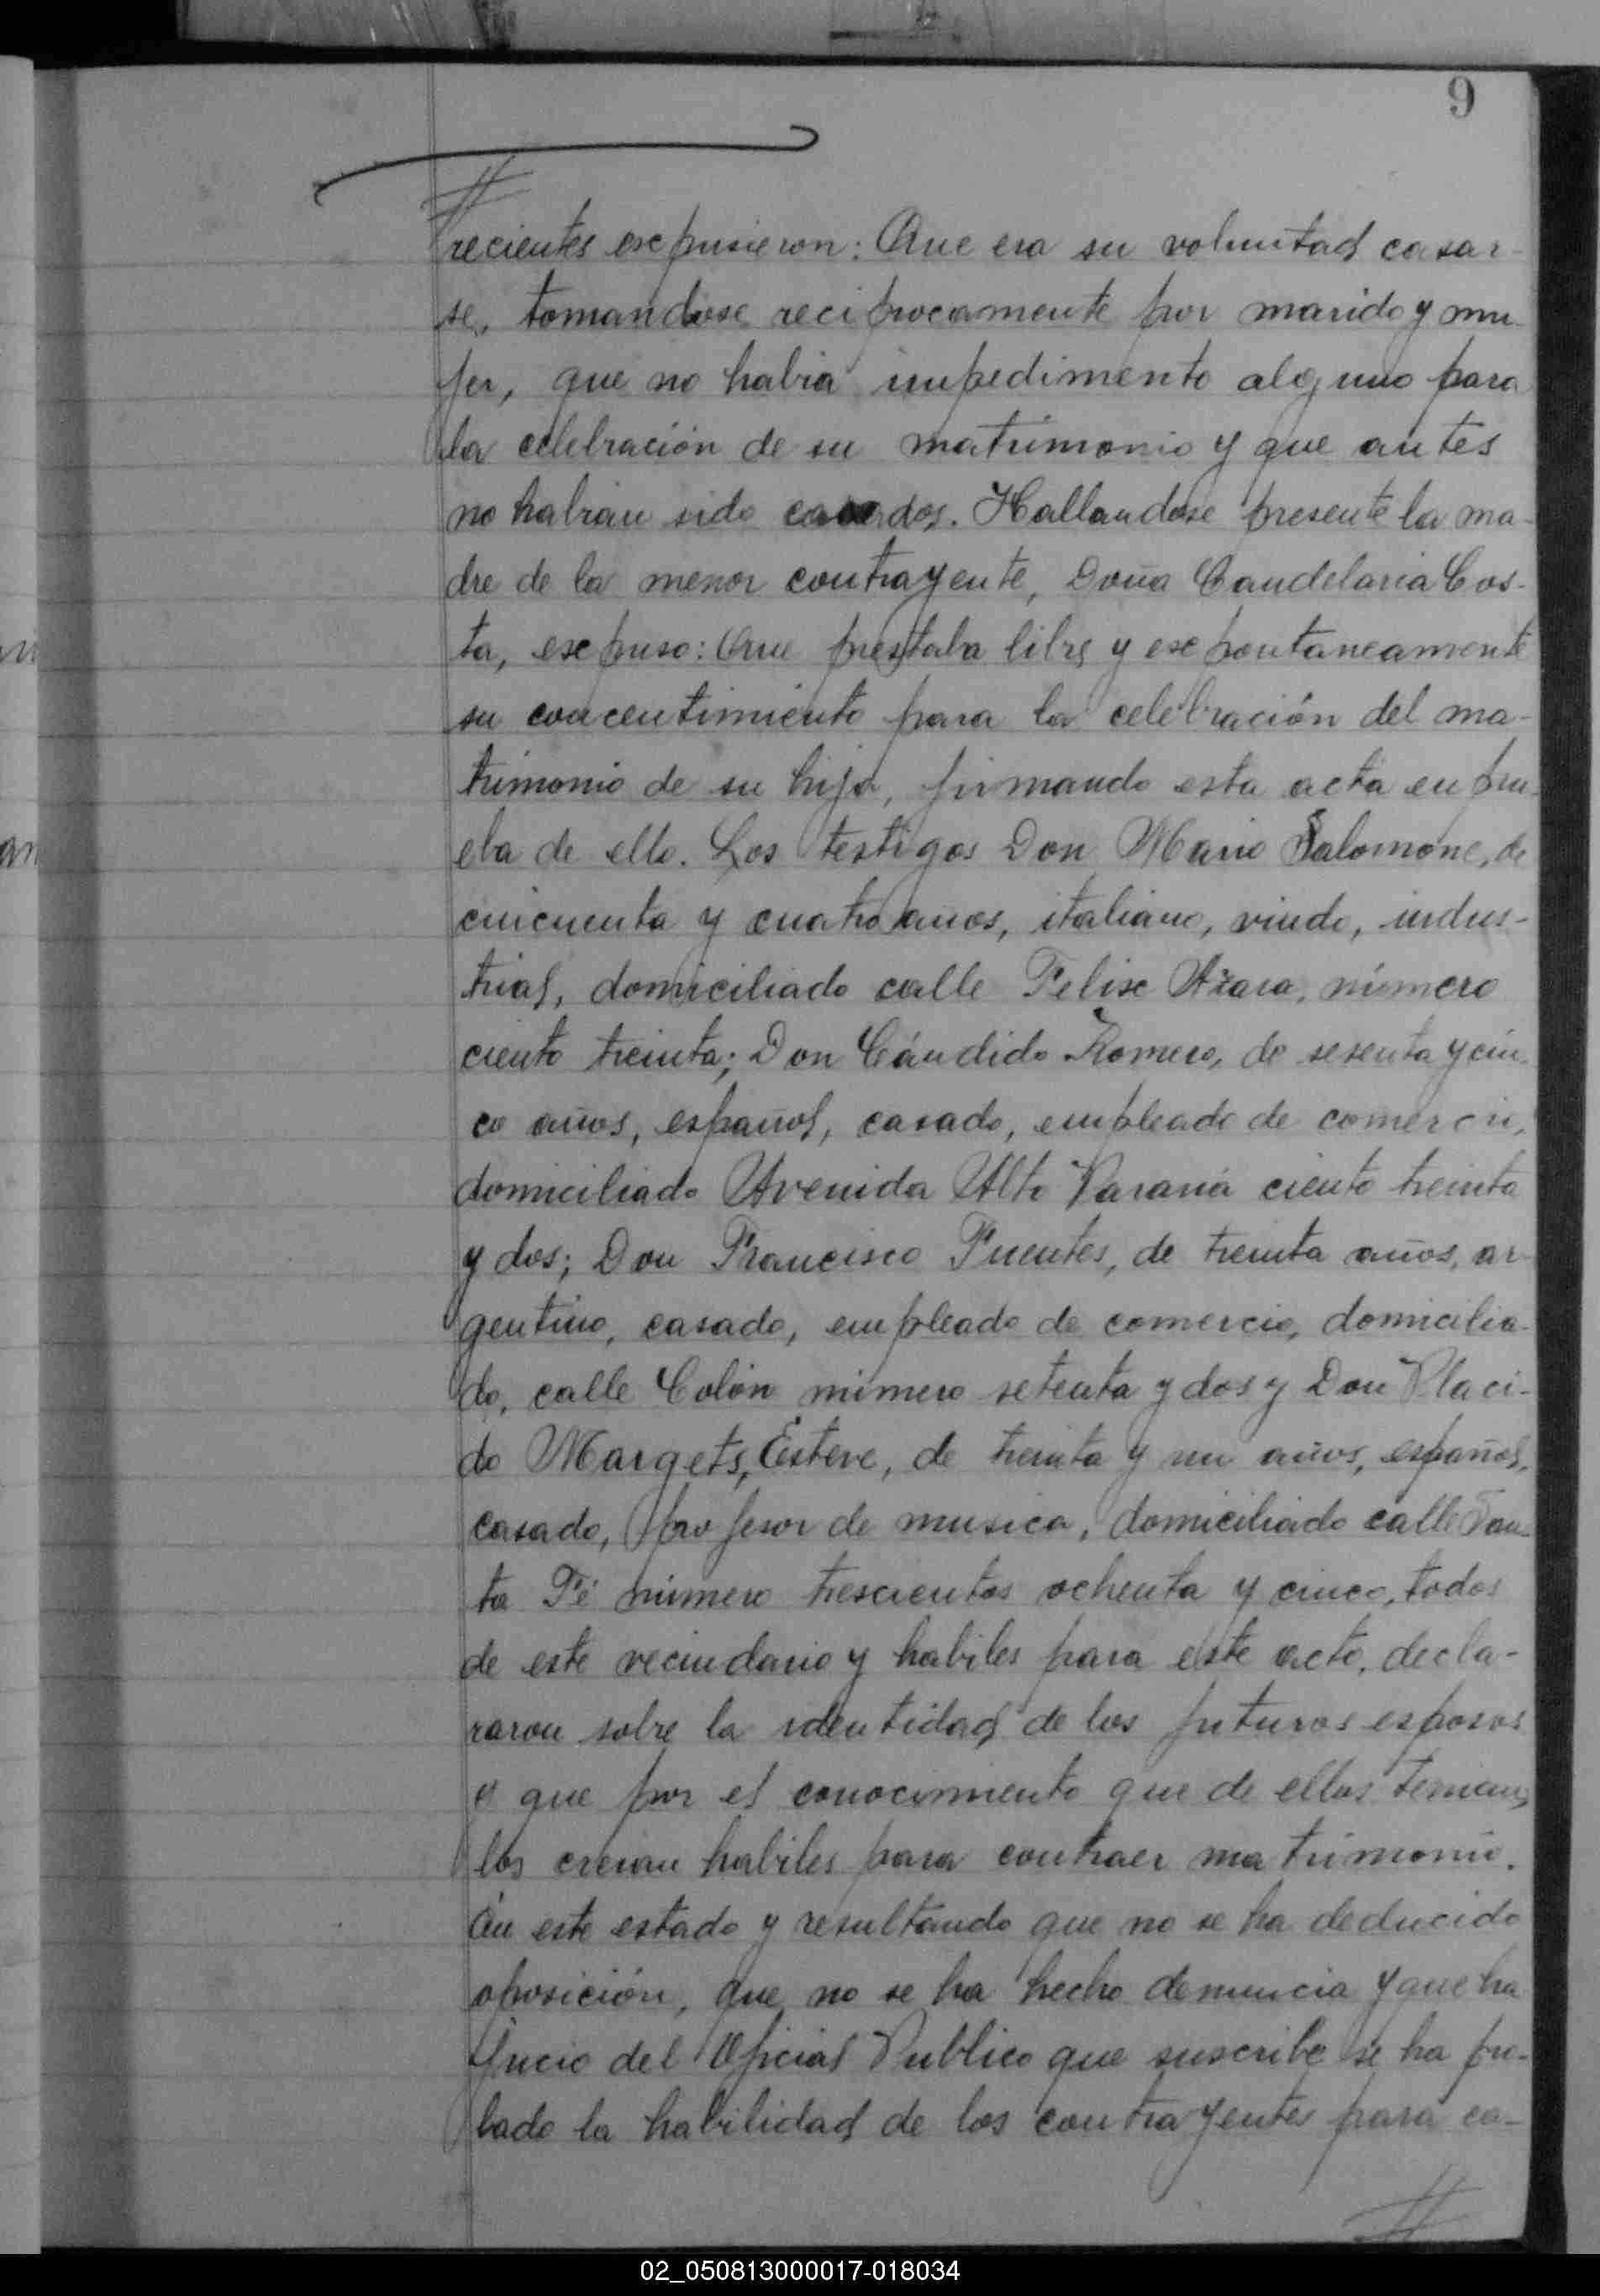 9
recientes expusieron: Que era su voluntad casar-
se, tomandose reciprocamente por marido y mu-
jer, que no habia impedimento alguno para
la celebración de su matrimonio y que antes
no habian sido casados. Hallandose presente la ma-
dre de la menor contrayente, Doña Candelaria Cos-
ta, expuso: Que prestaba libre y expontaneamente
su concentimiento para la celebración del ma-
trimonio de su hija, firmando esta acta en pru-
eba de ello. Los testigos Don Mario Salomone, de
cincuenta y cuatro años, italiano, viudo, indus-
trial, domiciliado calle Felix Azara, número
ciento treinta; Don Cándido Romero, de sesenta y cin-
co años, español, casado, empleado de comercio,
domiciliado Avenida Alto Paraná ciento treinta
y dos; Don Francisco Fuentes, de treinta años, ar-
gentino, casado, empleado de comercio, domicilia-
do, calle Colón número setenta y dos y Don Placi-
do Margets, Esteve, de treinta y un años, español,
casado, profesor de musica, domiciliado calle San-
ta Fé número trescientos ochenta y cinco, todos
de este vecindario y habiles para este acto, decla-
raron sobre la identidad de los futuros esposos
y que por el conocimiento que de ellos tenian,
los creian habiles para contraer matrimonio.
En este estado y resultando que no se ha deducido
oposición, que no se ha hecho denuncia y que ha
juicio del Oficial Publico que suscribe se ha pro-
bado la habilidad de los contrayentes para ca-
02_050813000017-018034